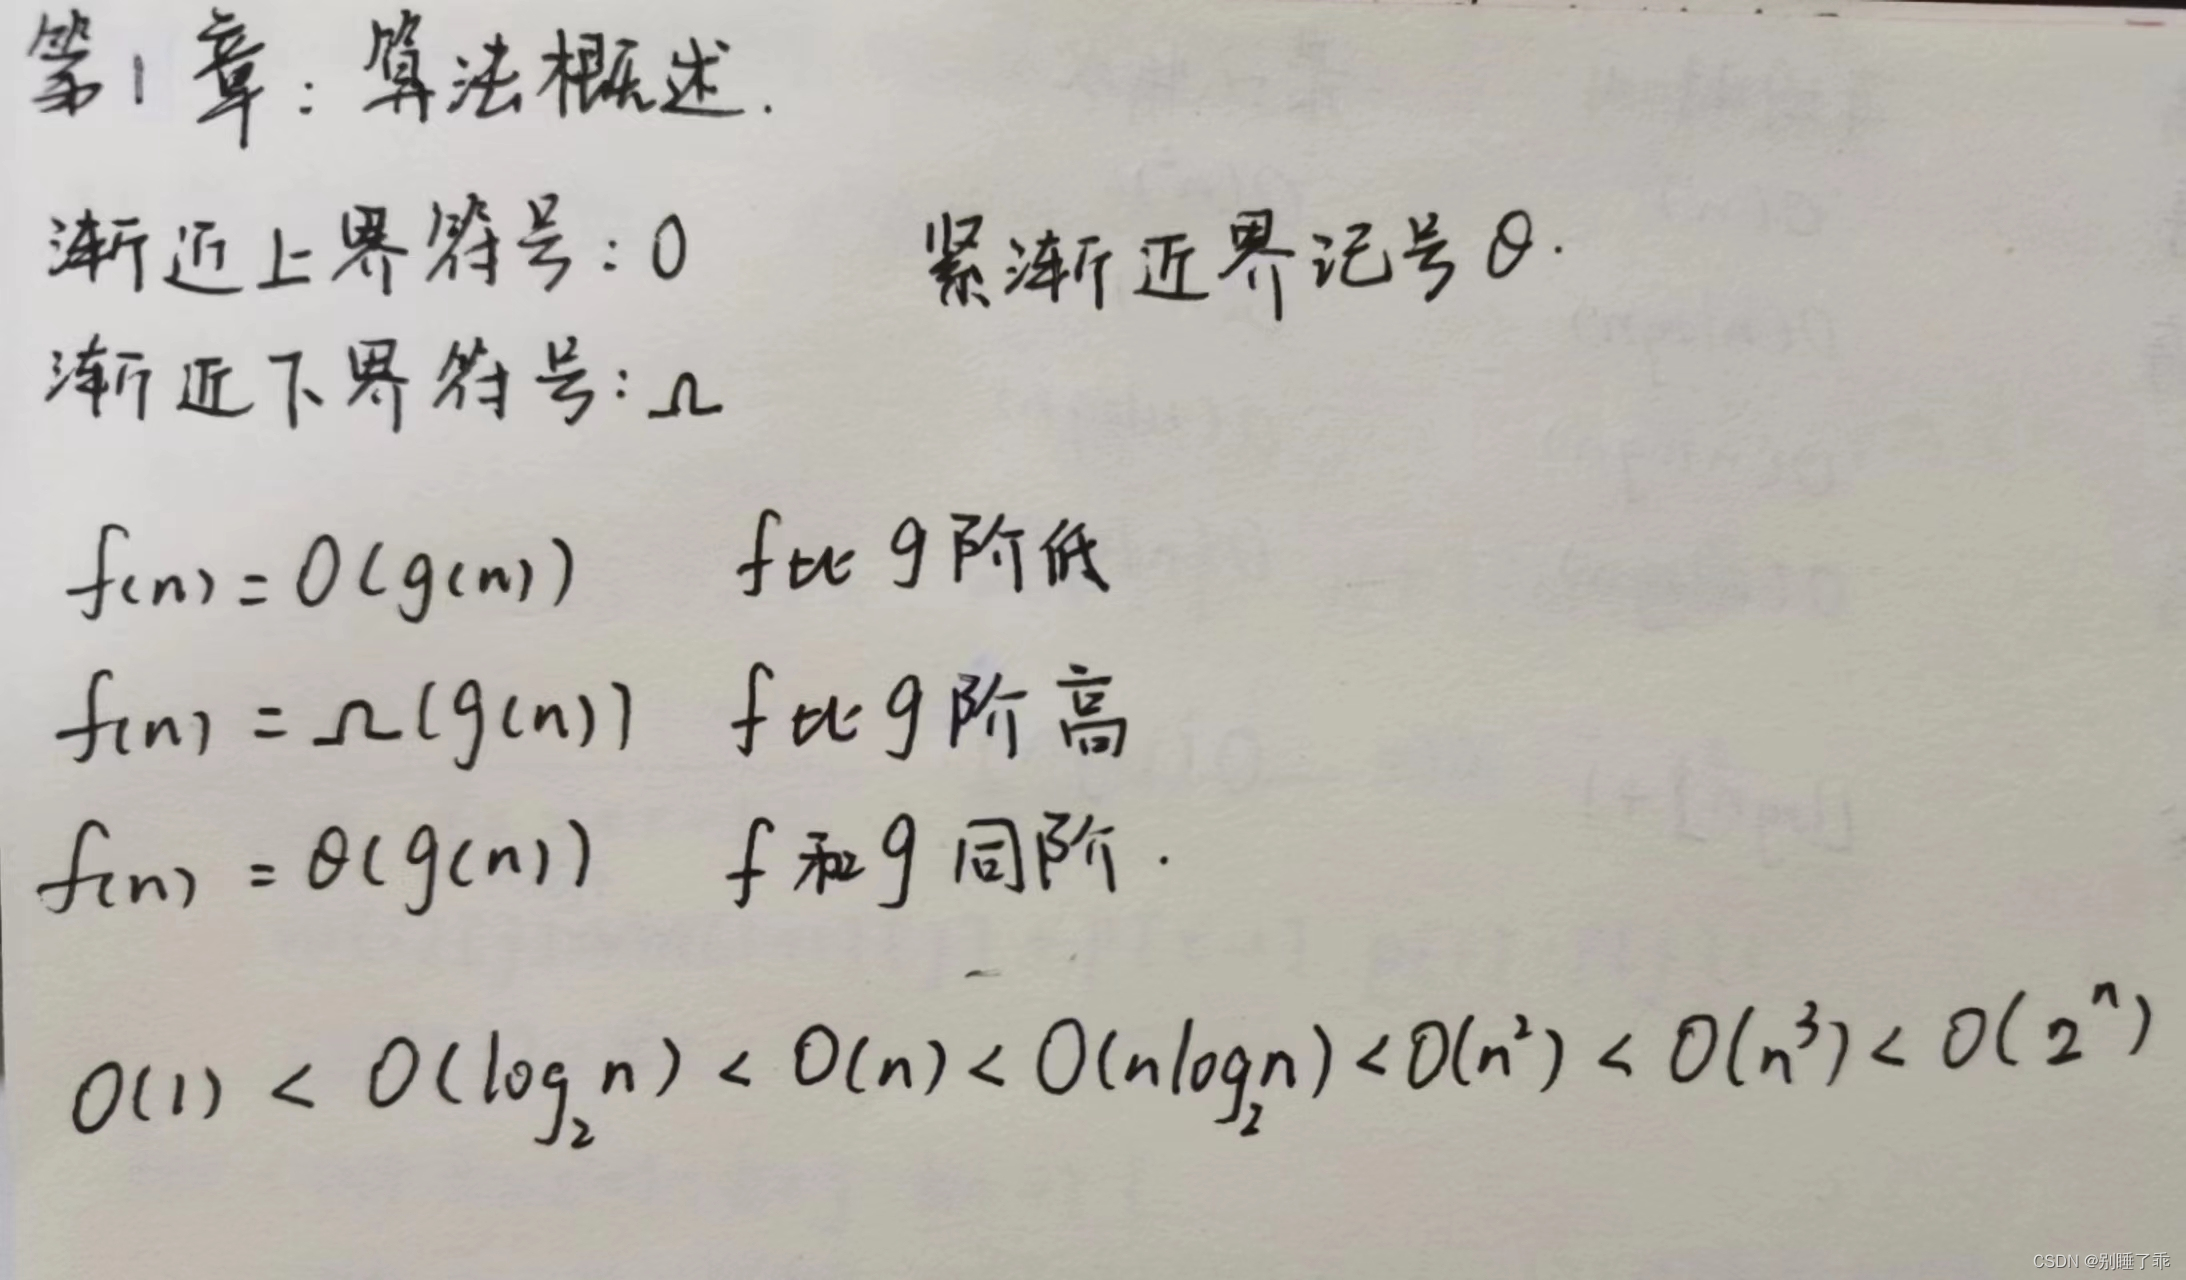 第1章:算法概述.
渐近上界符号:O 紧渐近界记号θ.
渐近下界符号:Ω
f(n)=O(g(n)) f比g阶低
f(n)=Ω(g(n)) f比g阶高
f(n)=θ(g(n)) f和g同阶.
O(1)<O(log₂n)<O(n)<O(nlog₂n)<O(n²)<O(n³)<O(2ⁿ)
CSDN @别睡了乖